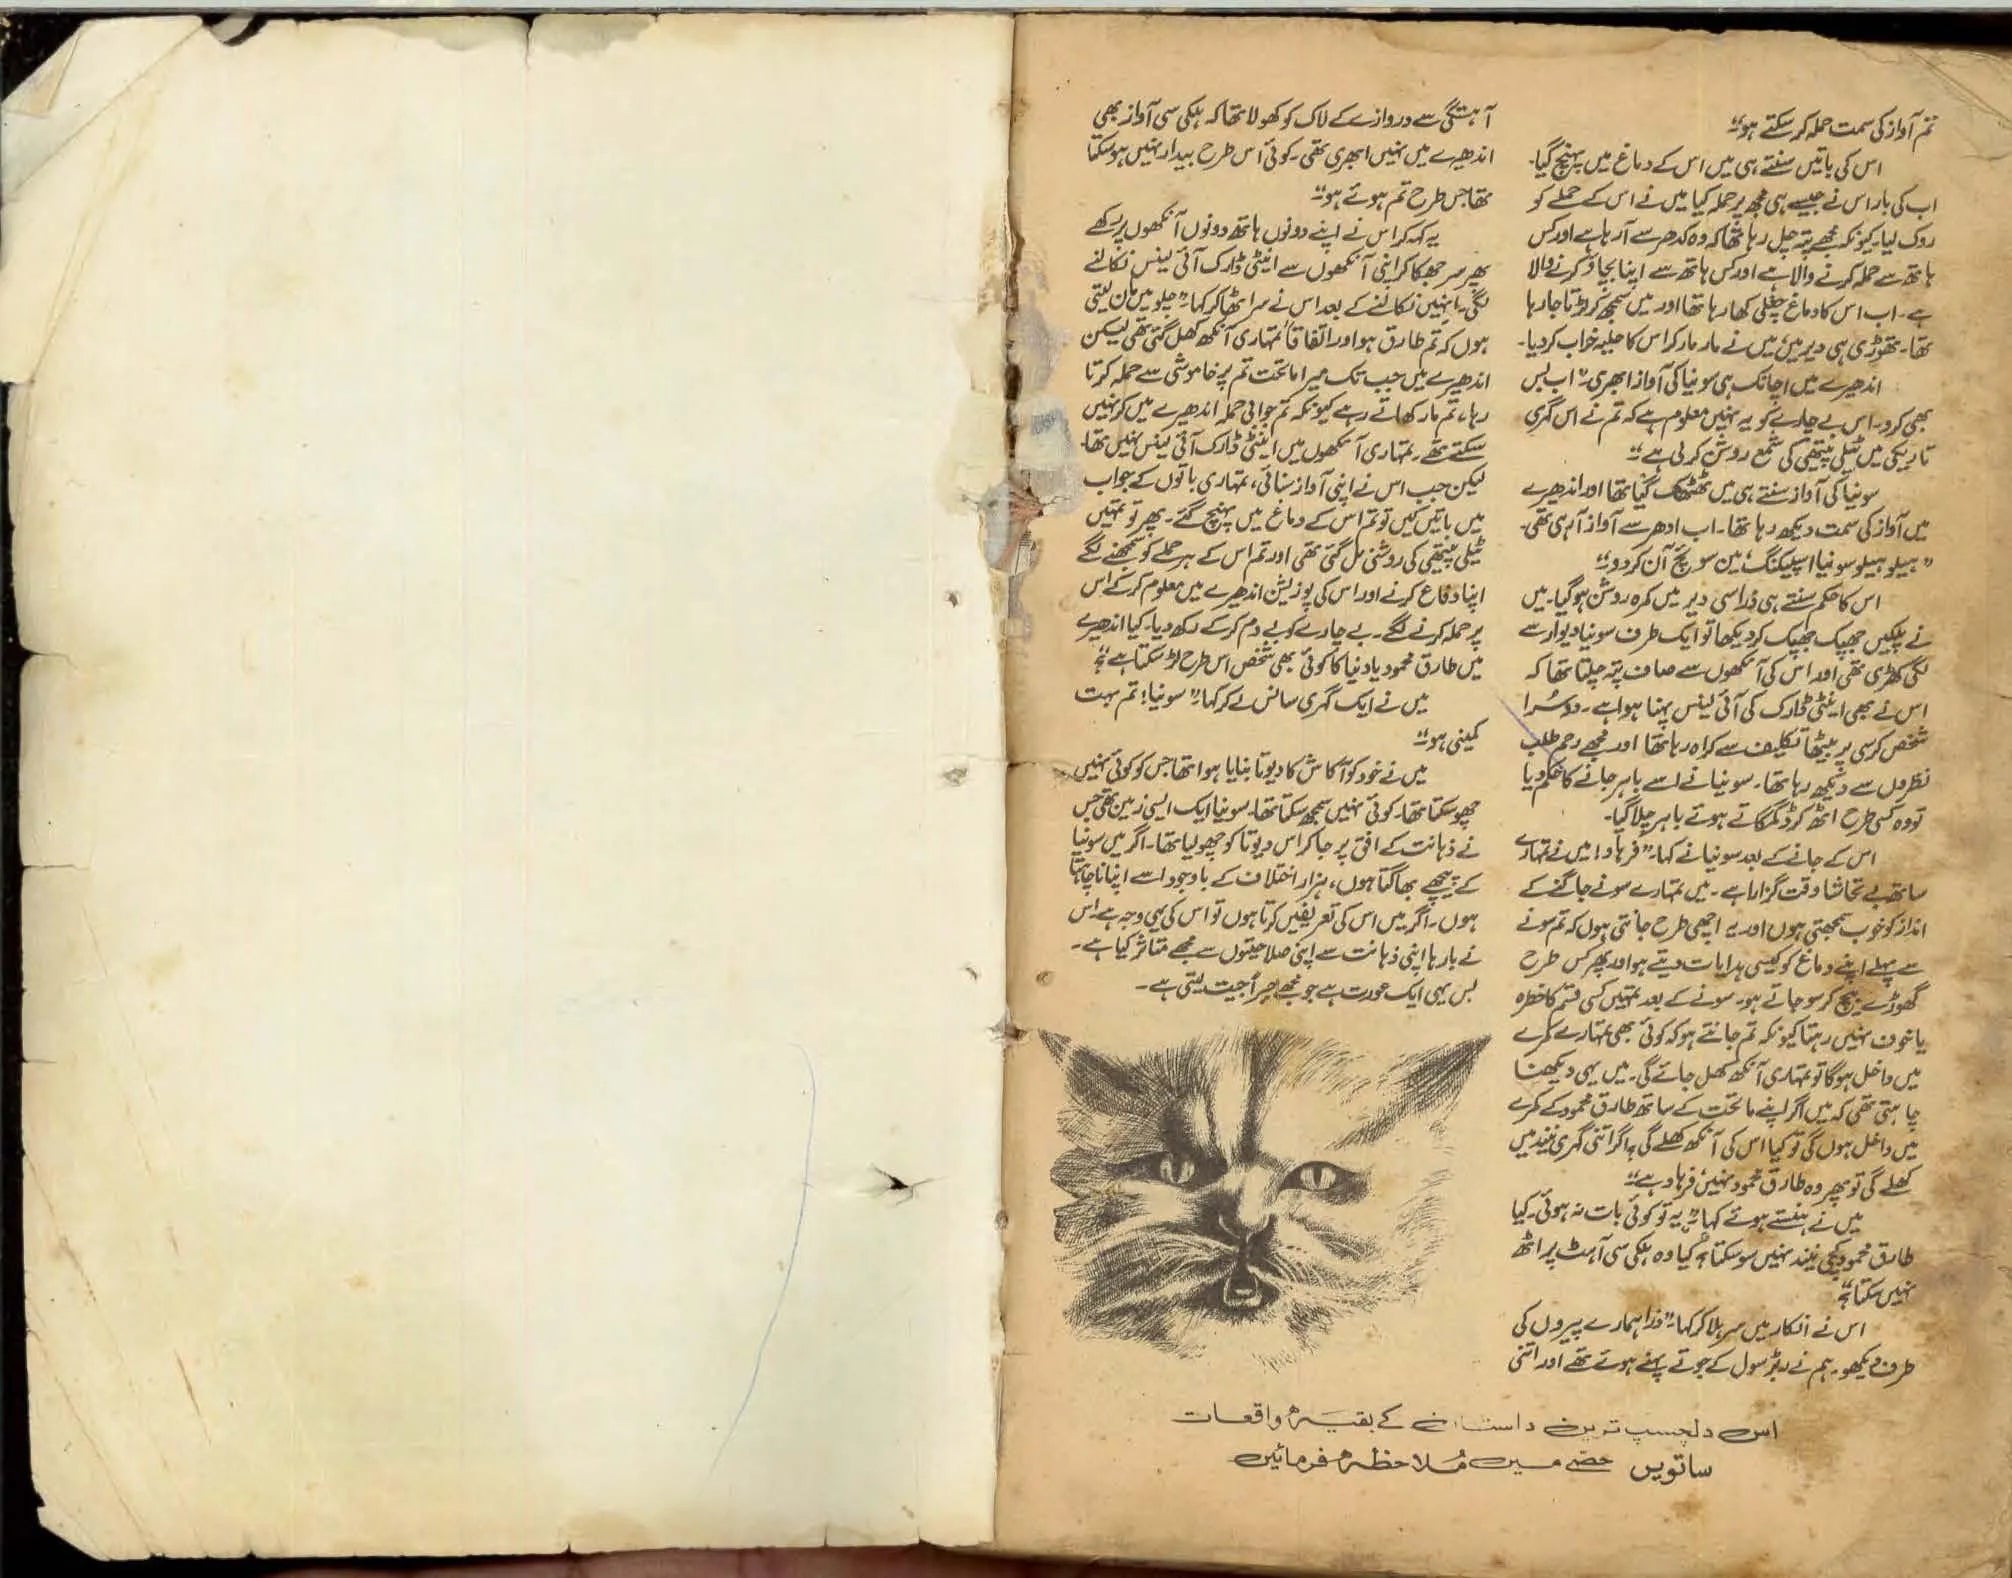 تم آواز کی سمت حملہ کر سکتے ہو"
اس کی باتیں سنتے ہی میں اس کے دماغ میں پہنچ گیا۔
اب کی بار اس نے جیسے ہی مجھ پر حملہ کیا میں نے اس کے حملے کو
روک لیا۔ کیونکہ مجھے پتہ چل رہا تھا کہ وہ کدھر سے آ رہا ہے اور کس
ہاتھ سے حملہ کرنے والا ہے اور کس ہاتھ سے اپنا بچاؤ کرنے والا
ہے۔ اب اس کا دماغ چغلی کھا رہا تھا اور میں سمجھ کر لڑتا جا رہا
تھا۔ تھوڑی ہی دیر میں، میں نے مار مار کر اس کا حلیہ خراب کر دیا۔
اندھیرے میں اچانک ہی سونیا کی آواز ابھری۔ "اب بس
بھی کرو۔ اس بے چارے کو یہ نہیں معلوم ہے کہ تم نے اس گہری
تاریکی میں ٹیلی پیتھی کی شمع روشن کر لی ہے۔"
سونیا کی آواز سنتے ہی میں ٹھٹھک گیا تھا اور اندھیرے
میں آواز کی سمت دیکھ رہا تھا۔ اب ادھر سے آواز آ رہی تھی۔
"ہیلو ہیلو سونیا اسپیکنگ، مین سوئچ آن کر دو۔"
اس کا حکم سنتے ہی ذرا سی دیر میں کمرہ روشن ہو گیا۔ میں
نے پلکیں جھپک جھپک کر دیکھا تو ایک طرف سونیا دیوار سے
لگی کھڑی تھی اور اس کی آنکھوں سے صاف پتہ چلتا تھا کہ
اس نے بھی اینٹی ڈارک کی آئی لینس پہنا ہوا ہے۔ دوسرا
شخص کرسی پر بیٹھا تکلیف سے کراہ رہا تھا اور مجھے رحم طلب
نظروں سے دیکھ رہا تھا۔ سونیا نے اسے باہر جانے کا حکم دیا
تو وہ کسی طرح اٹھ کر ڈگمگاتے ہوتے باہر چلا گیا۔
اس کے جانے کے بعد سونیا نے کہا۔ "فرہاد! میں نے تمہارے
ساتھ بے تحاشا وقت گزارا ہے۔ میں تمہارے سونے جاگنے کے
انداز کو خوب سمجھتی ہوں اور یہ اچھی طرح جانتی ہوں کہ تم سونے
سے پہلے اپنے دماغ کو کیسی ہدایات دیتے ہو اور پھر کس طرح
گھوڑے بیچ کر سو جاتے ہو۔ سونے کے بعد تمہیں کسی قسم کا خطرہ
یا خوف نہیں رہتا کیونکہ تم جانتے ہو کہ کوئی بھی تمہارے کمرے
میں داخل ہو گا تو تمہاری آنکھ کھل جائے گی۔ میں یہی دیکھنا
چاہتی تھی کہ میں اگر اپنے ماتحت کے ساتھ طارق محمود کے کمرے
میں داخل ہوں گی تو کیا اس کی آنکھ کھلے گی؟ اگر اتنی گہری نیند میں
کھلے گی تو پھر وہ طارق محمود نہیں فرہاد ہے۔"
میں نے ہنستے ہوئے کہا۔ "یہ تو کوئی بات نہ ہوئی۔ کیا
طارق محمود کچی نیند نہیں سو سکتا؟ کیا وہ ہلکی سی آہٹ پر اٹھ
نہیں سکتا؟"
اس نے انکار میں سر ہلا کر کہا۔ "ذرا ہمارے پیروں کی
طرف دیکھو۔ ہم نے ربڑ سول کے جوتے پہنے ہوتے تھے اور اتنی
آہستگی سے دروازے کے لاک کو کھولا تھا کہ ہلکی سی آواز بھی
اندھیرے میں نہیں ابھری تھی۔ کوئی اس طرح بیدار نہیں ہو سکتا
تھا جس طرح تم ہوئے ہو۔"
یہ کہہ کر اس نے اپنے دونوں ہاتھ دونوں آنکھوں پر رکھے
پھر سر جھکا کر اپنی آنکھوں سے اینٹی ڈارک آئی لینس نکالنے
لگی۔ انہیں نکالنے کے بعد اس نے سر اٹھا کر کہا۔ "چلو میں مان لیتی
ہوں کہ تم طارق ہو اور اتفاقاً تمہاری آنکھ کھل گئی تھی لیکن
اندھیرے میں جب تک میرا ماتحت تم پر خاموشی سے حملہ کرتا
رہا، تم مار کھاتے رہے کیونکہ تم جوابی حملہ اندھیرے میں کر نہیں
سکتے تھے۔ تمہاری آنکھوں میں اینٹی ڈارک آئی لینس نہیں تھا۔
لیکن جب اس نے اپنی آواز سنائی، تمہاری باتوں کے جواب
میں باتیں کیں تو تم اس کے دماغ میں پہنچ گئے۔ پھر تو تمہیں
ٹیلی پیتھی کی روشنی مل گئی تھی اور تم اس کے ہر حملے کو سمجھنے لگے
اپنا دفاع کرنے اور اس کی پوزیشن اندھیرے میں معلوم کر کے اس
پر حملہ کرنے لگے۔ بے چارے کو بے دم کر کے رکھ دیا۔ کیا اندھیرے
میں طارق محمود یا دنیا کا کوئی بھی شخص اس طرح لڑ سکتا ہے؟"
میں نے ایک گہری سانس لے کر کہا۔ "سونیا! تم بہت
کمینی ہو۔"
میں نے خود کو آکاش کا دیوتا بنایا ہوا تھا جس کو کوئی نہیں
چھو سکتا تھا، کوئی نہیں سمجھ سکتا تھا۔ سونیا ایک ایسی زمین تھی جس
نے ذہانت کے افق پر جا کر اس دیوتا کو چھو لیا تھا۔ اگر میں سونیا
کے پیچھے بھاگتا ہوں، ہزار اختلاف کے باوجود اسے اپنانا چاہتا
ہوں۔ اگر میں اس کی تعریفیں کرتا ہوں تو اس کی یہی وجہ ہے۔ اس
نے بارہا اپنی ذہانت سے اپنی صلاحیتوں سے مجھے متاثر کیا ہے۔
بس یہی ایک عورت ہے جو مجھے جبراً جیت لیتی ہے۔
اس دلچسپ ترین داستان کے بقیہ واقعات
ساتویں حصے میں مُلاحظہ فرمائیں